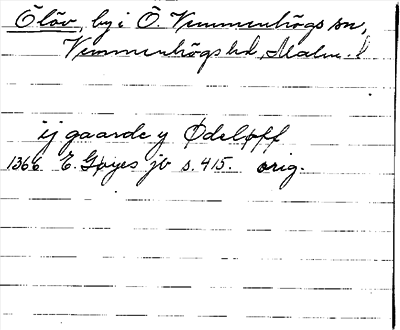 Ölöv, by i Ö. Vemmenhögs sn,
Vemmenhögs hd, Malm. l
ij gaarde y Ødeløff
1366 E. Gøyes jb s. 415. orig.